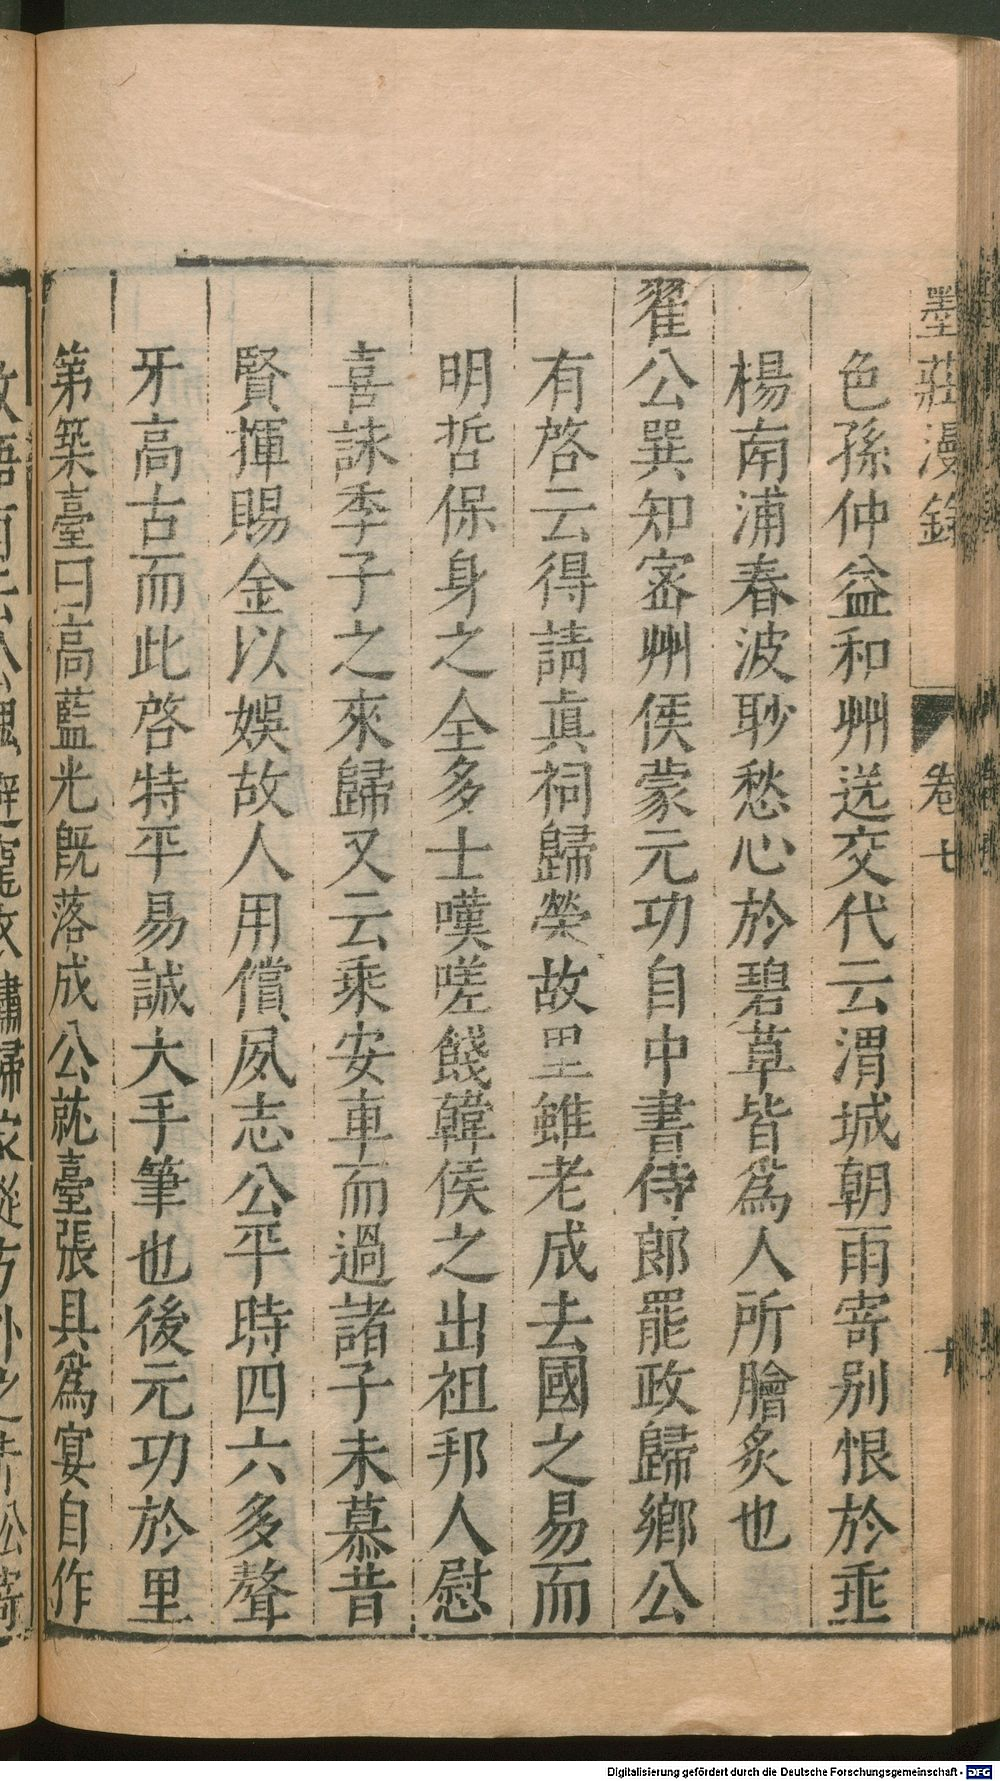 墨莊漫錄
卷七
十
色孫仲益和州送交代云渭城朝雨寄别恨於垂
楊南浦春波眇愁心於碧草皆爲人所膾炙也
翟公巽知宻州侯蒙元功自中書侍郎罷政歸鄉公
有啓云得請眞祠歸榮故里雖老成去國之易而
明哲保身之全多士嘆嗟餞韓侯之出祖邦人慰
喜詠季子之來歸又云乘安車而過諸子未慕昔
賢揮賜金以娛故人用償夙志公平時四六多聱
牙高古而此啓特平易誠大手筆也後元功於里
第築臺曰高藍光旣落成公就臺張具爲宴自作
Digitalisierung gefördert durch die Deutsche Forschungsgemeinschaft - DFG